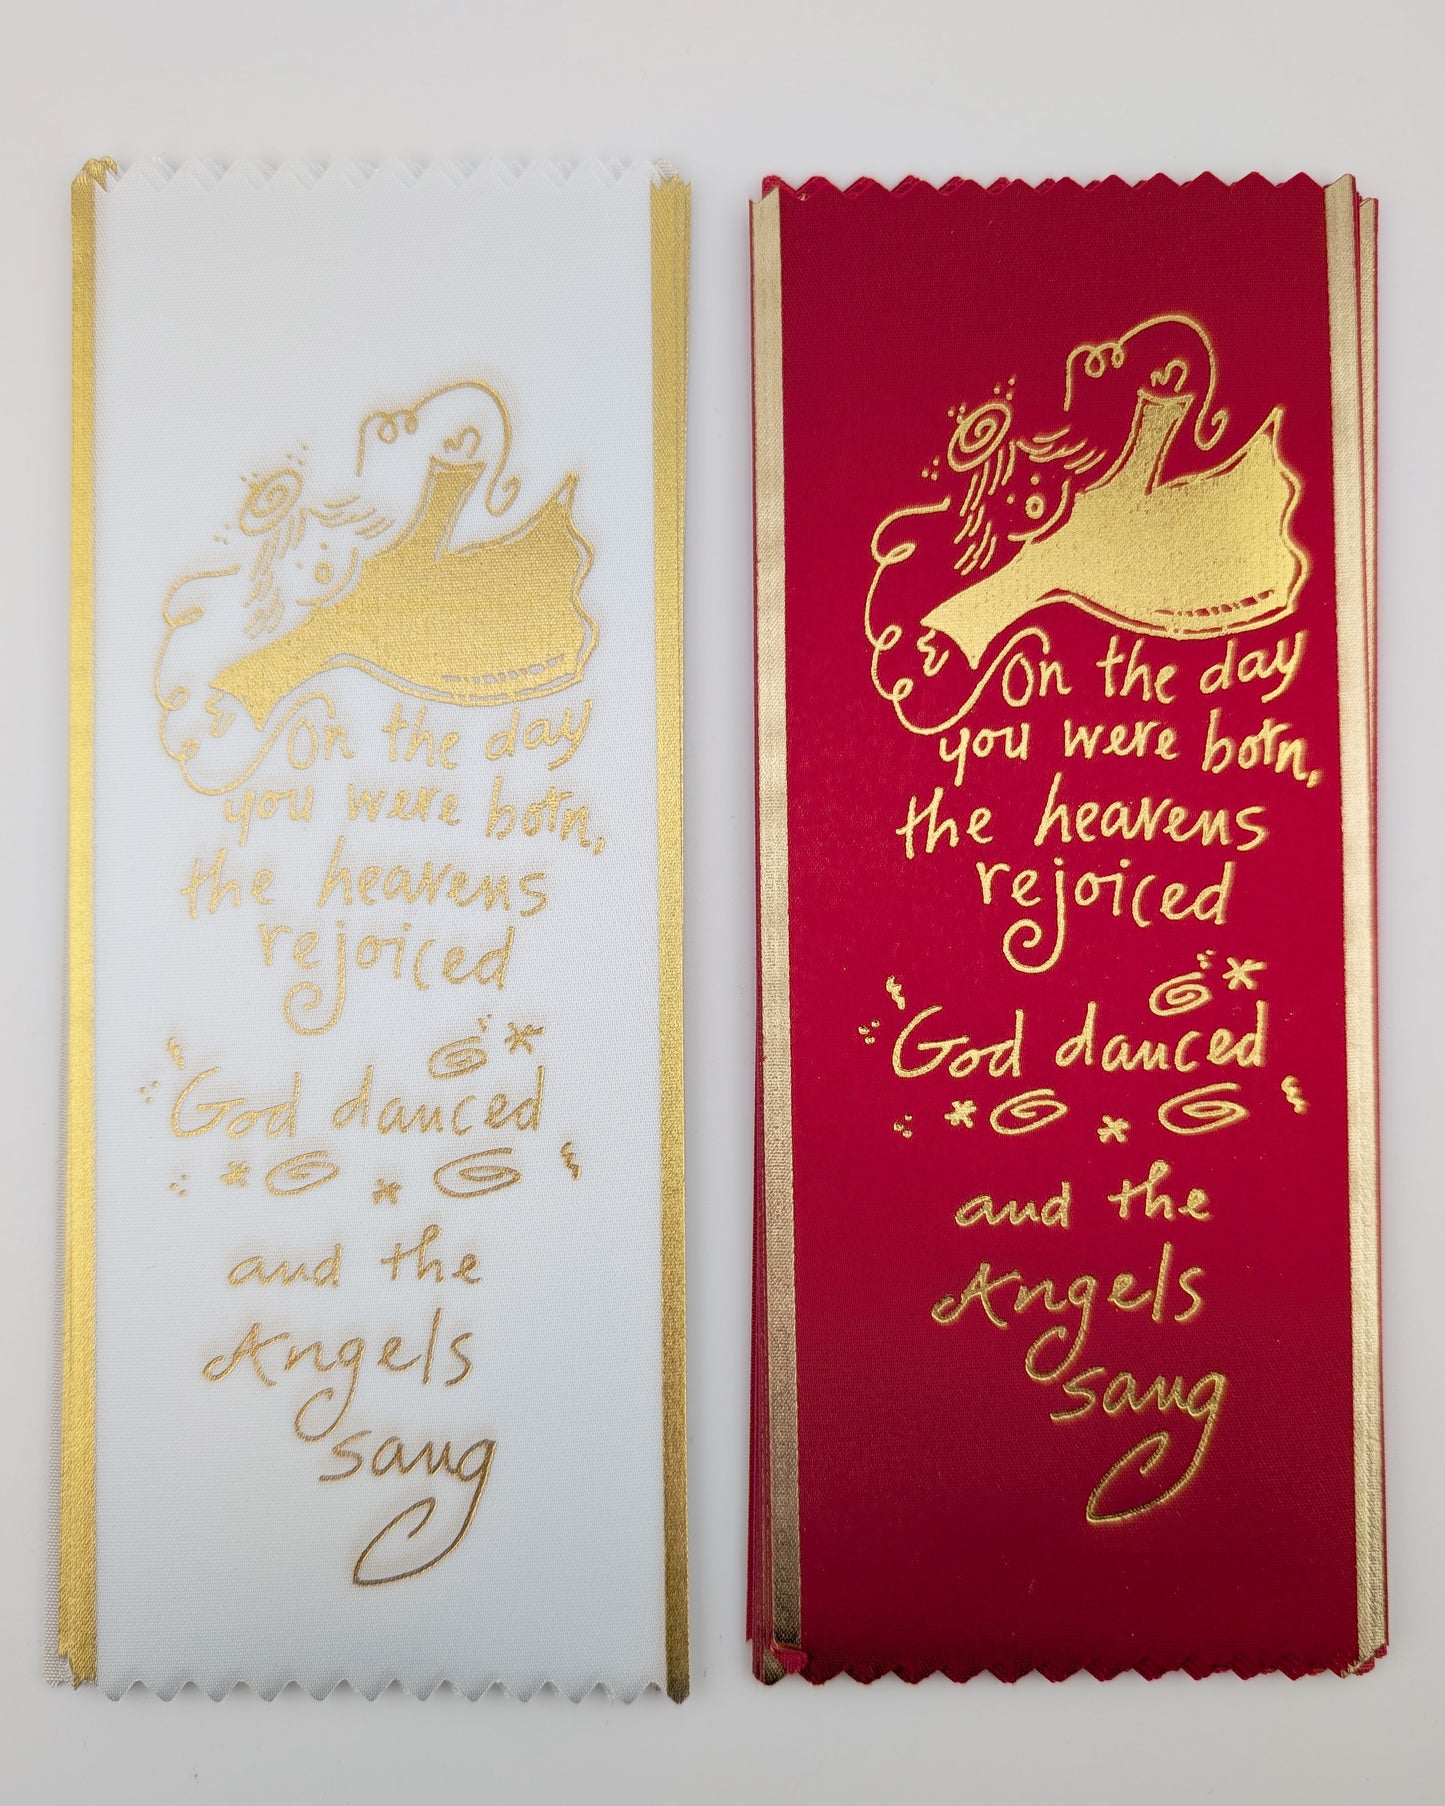 On the day
you were born,
the heavens
rejoiced
God danced
and the
Angels
sang
On the day
you were born,
the heavens
rejoiced
God danced
and the
Angels
sang